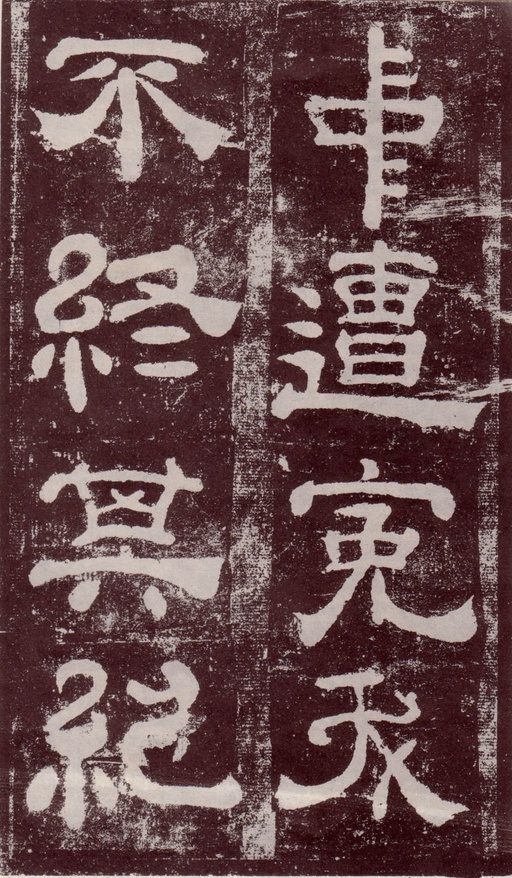 中遭冤夭
不終其紀